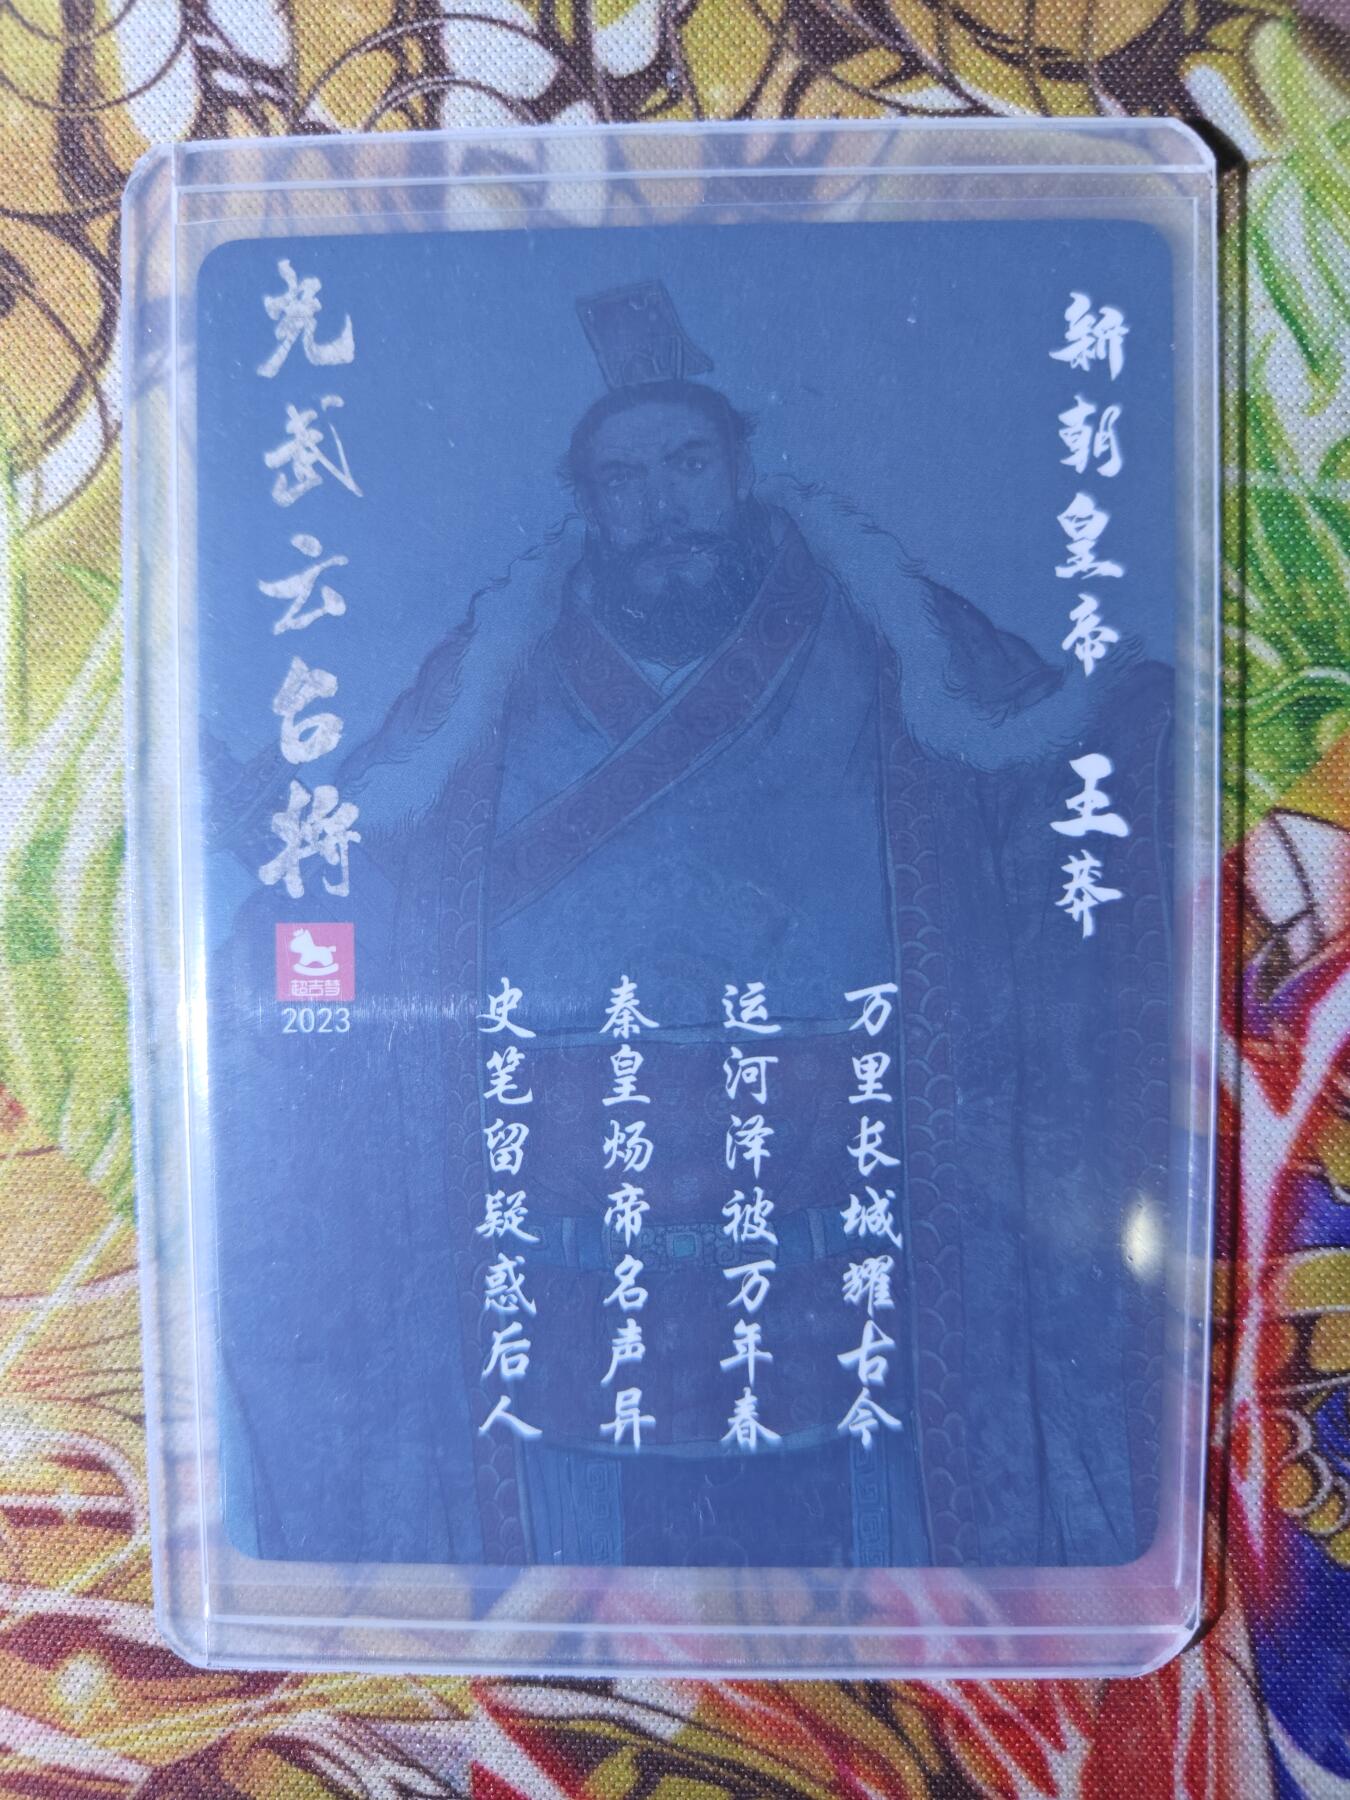 新朝皇帝 王莽
万里长城耀古今
运河泽被万年春
秦皇炀帝名声异
史笔留疑惑后人
光武云台将
超古梦
2023